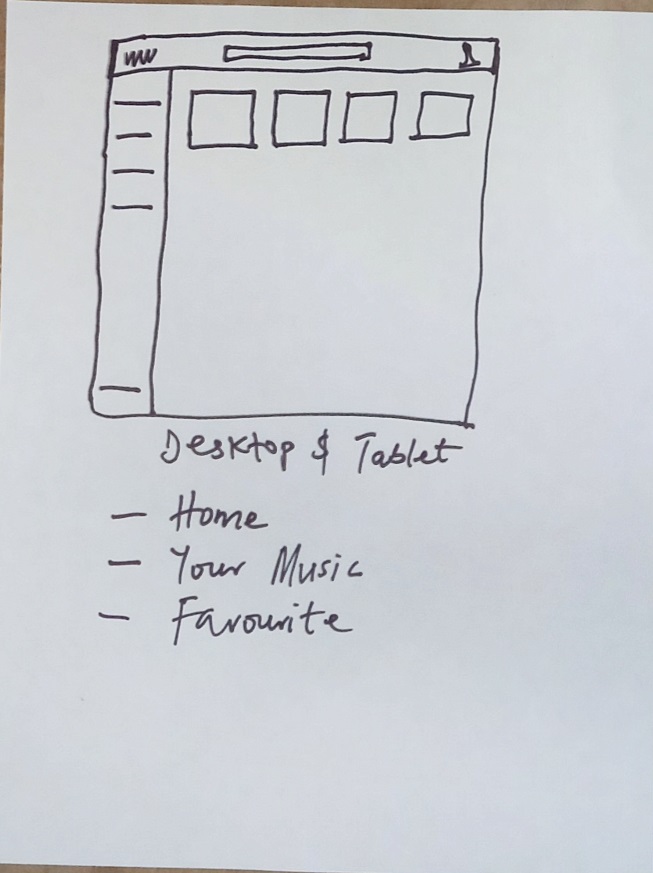 Desktop & Tablet
— Home
— Your Music
— Favourite